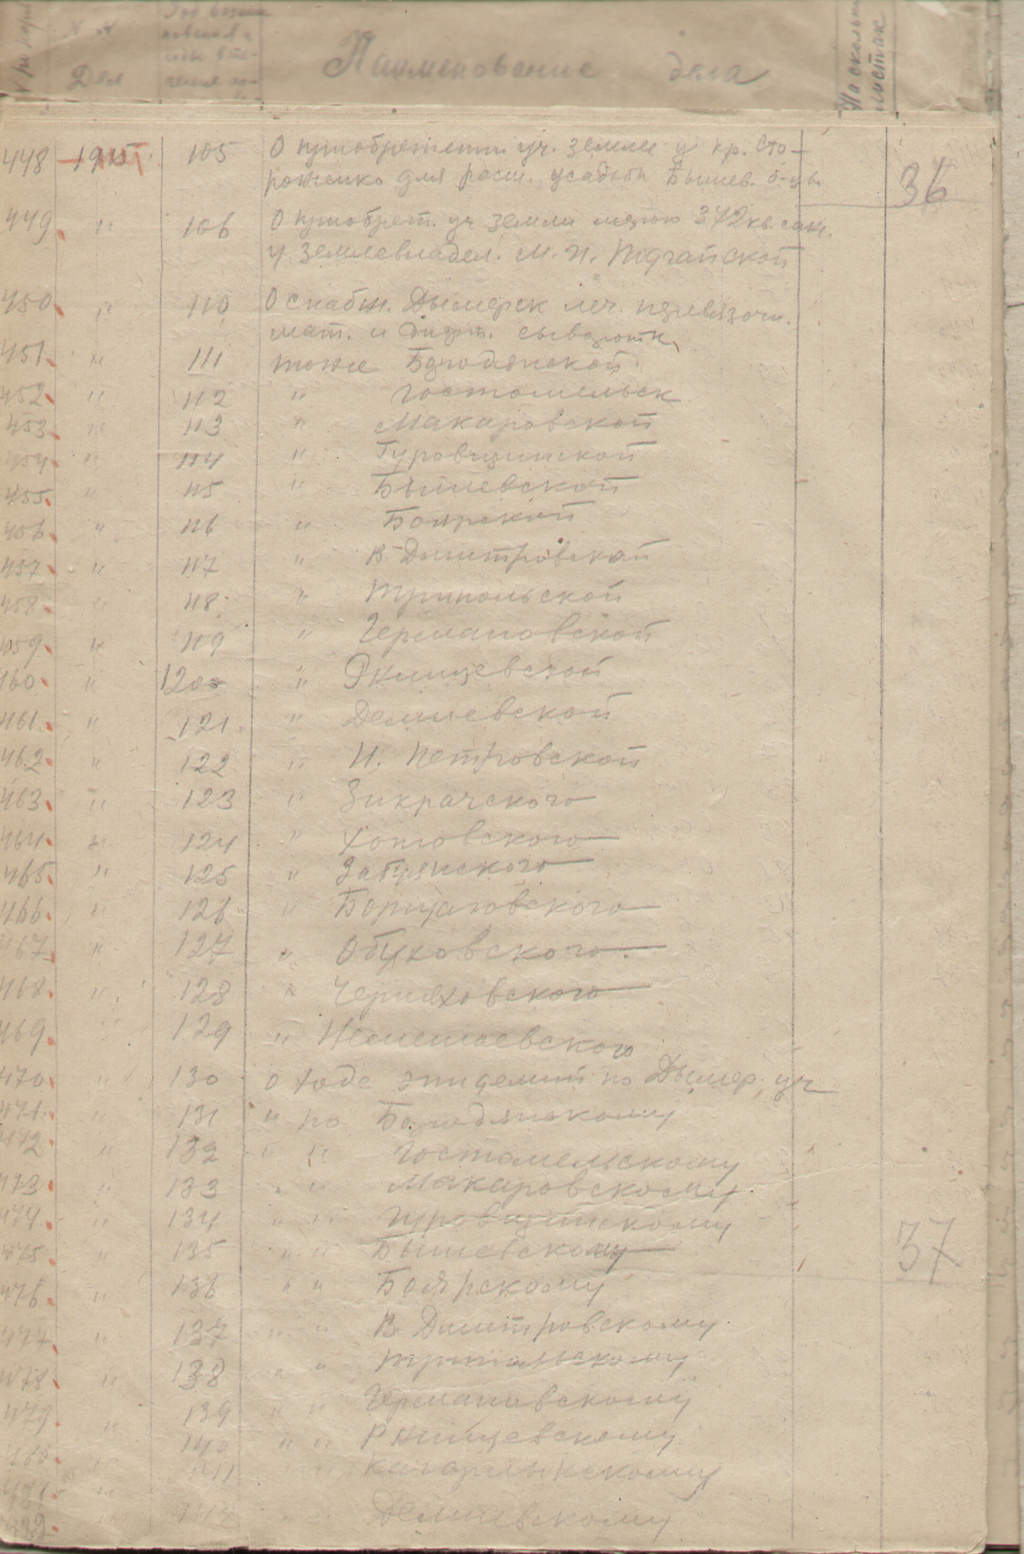 № Дел
Наименование дела
На скольк листах
448 1915 105 О приобретении уч. земли у кр. Сто-
рожемко для расш. усадьбы Бышев. б-цы 36
449 " 106 О приобрет. уч земли мерою 372 кв. саж.
у землевладел. М. И. Подгайской
450 " 110 О снабж. Дымерск леч. перевязочн.
мат. и дифт. сывороткъ
451 " 111 тоже Бородянской
452 " 112 " Гостомельск
453 " 113 " Макаровской
454 " 114 " Гуровщинской
455 " 115 " Бышевской
456 " 116 " Боярской
457 " 117 " В-Дмитровской
458 " 118 " Трипольской
459 " 119 " Германовской
460 " 120 " Ржищевской
461 " 121 " Демиевской
462 " 122 " И. Петровской
463 " 123 " Зикрачского
464 " 124 " Хотовского
465 " 125 " Забуянского
466 " 126 " Борщаговского
467 " 127 " Обуховского
468 " 128 " Черняховского
469 " 129 " Немешаевского
470 " 130 О ходе эпидемий по Дымер. уч
471 " 131 " по Бородянскому
472 " 132 " " Гостомельскому
473 " 133 " " Макаровскому
474 " 134 " " Гуровщинскому
475 " 135 " " Бышевскому 37
476 " 136 " " Боярскому
477 " 137 " " В Дмитровскому
478 " 138 " " Трипольскому
479 " 139 " " Германовскому
480 " 140 " " Ржищевскому
481 " 141 " " Кагарлыкскому
482 " 142 " Демиевскому